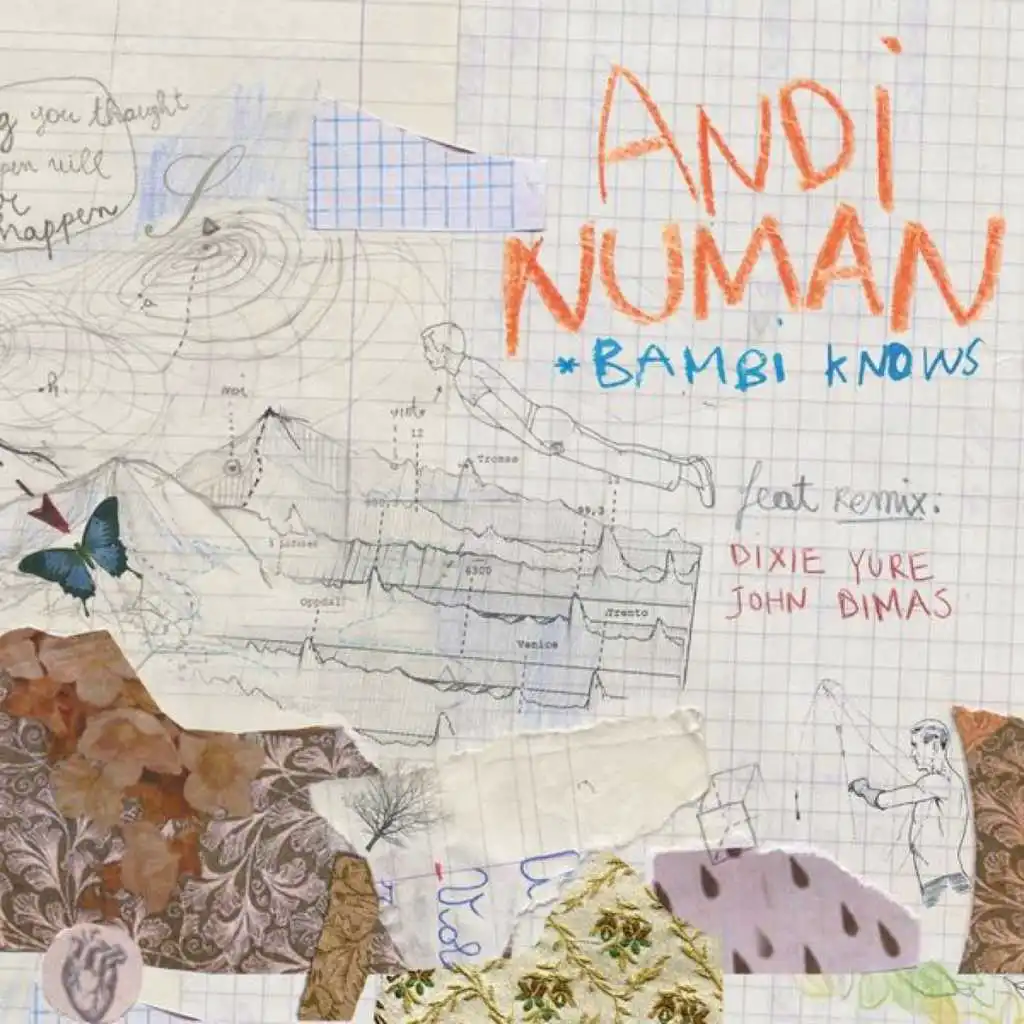 you thought
will
happen
ANDi
NUMAN
*BAMBi KNOWS
feat REMIX:
DIXIE YURE
JOHN DIMAS
moi
12
Tromsø
12
99,3
6300
Oppdal
Trento
Venice